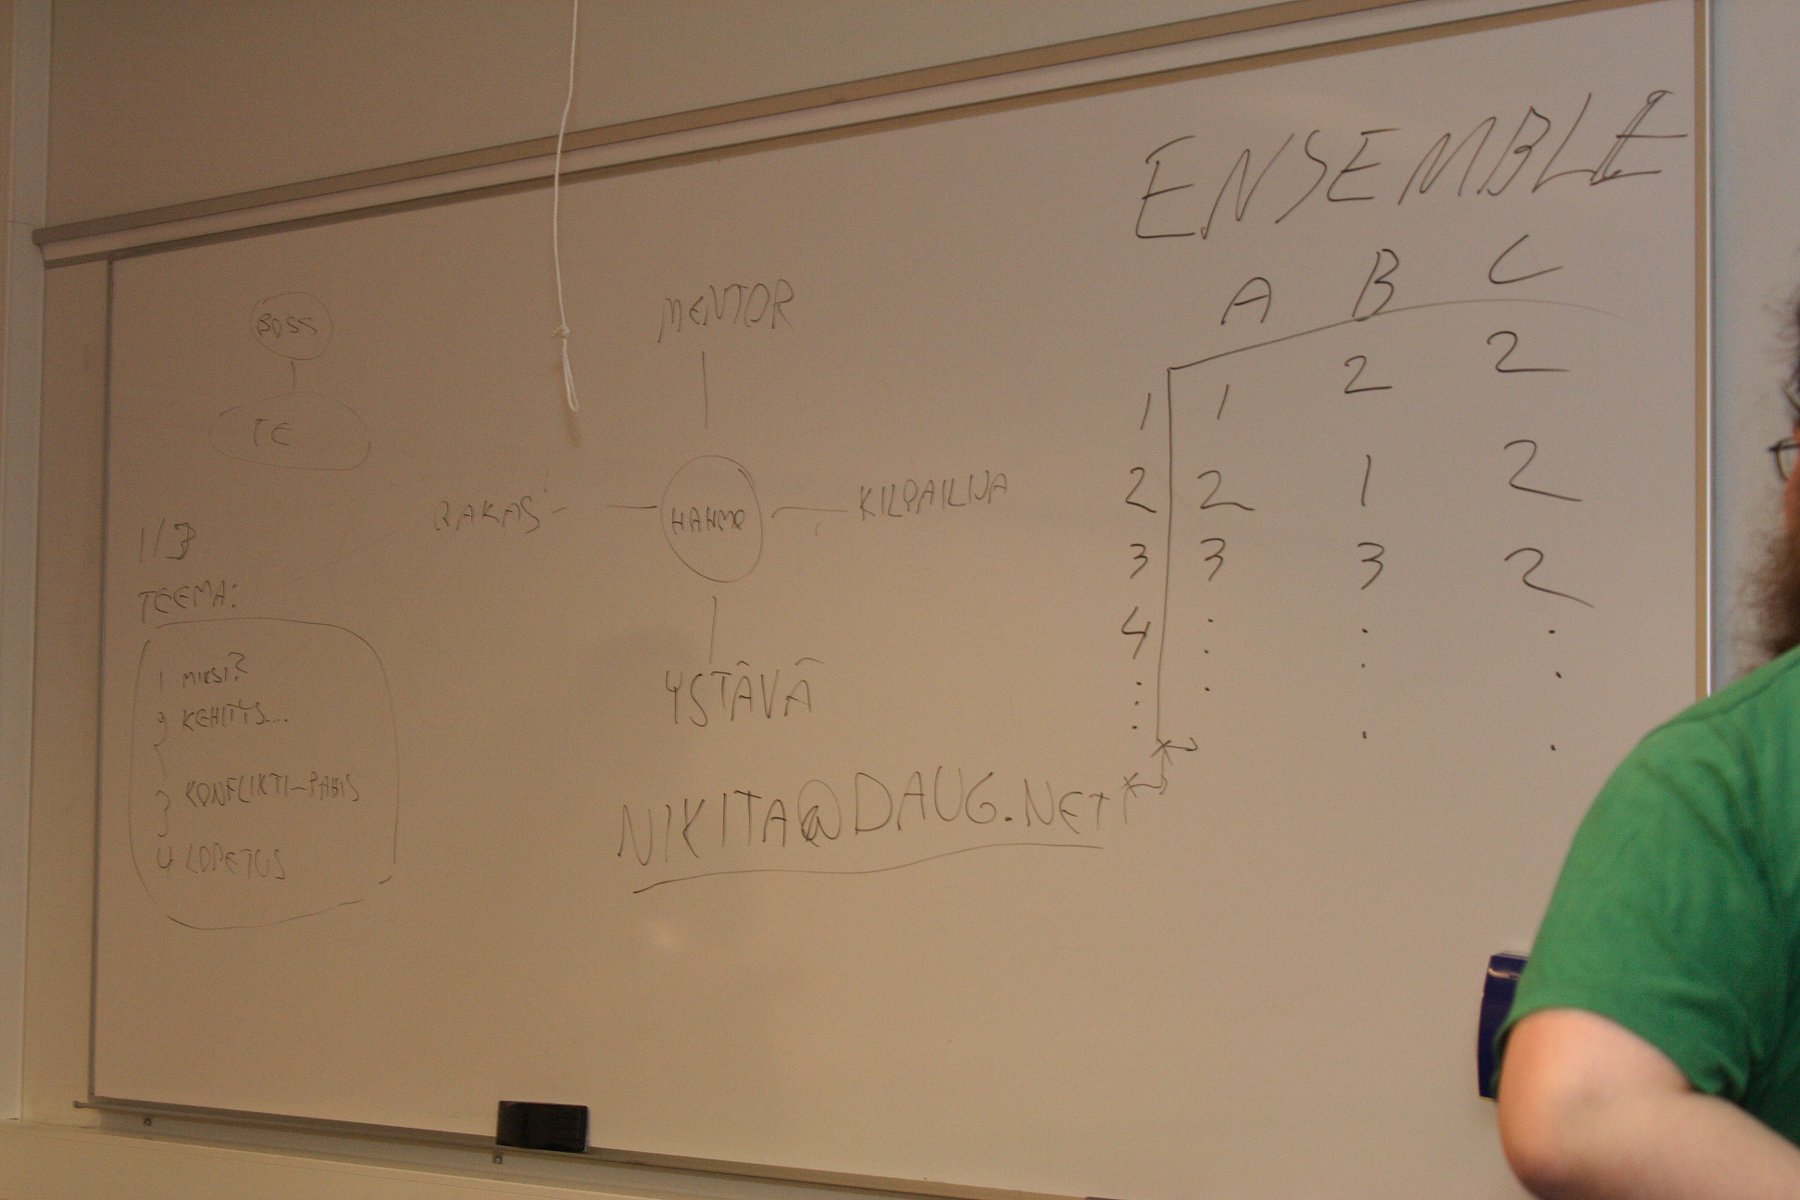 BOSS
TE
1/3
TEEMA:
1 MIKSI?
2 KEHITYS...
3 KONFLIKTI-
4 LOPETUS
MENTOR
RAKAS
HAHMO
KILPAILIJA
YSTÄVÄ
NIKITA@DAUG.NET
ENSEMBLE
A B C
1 1 2 2
2 2 1 2
3 3 3 2
4 . . .